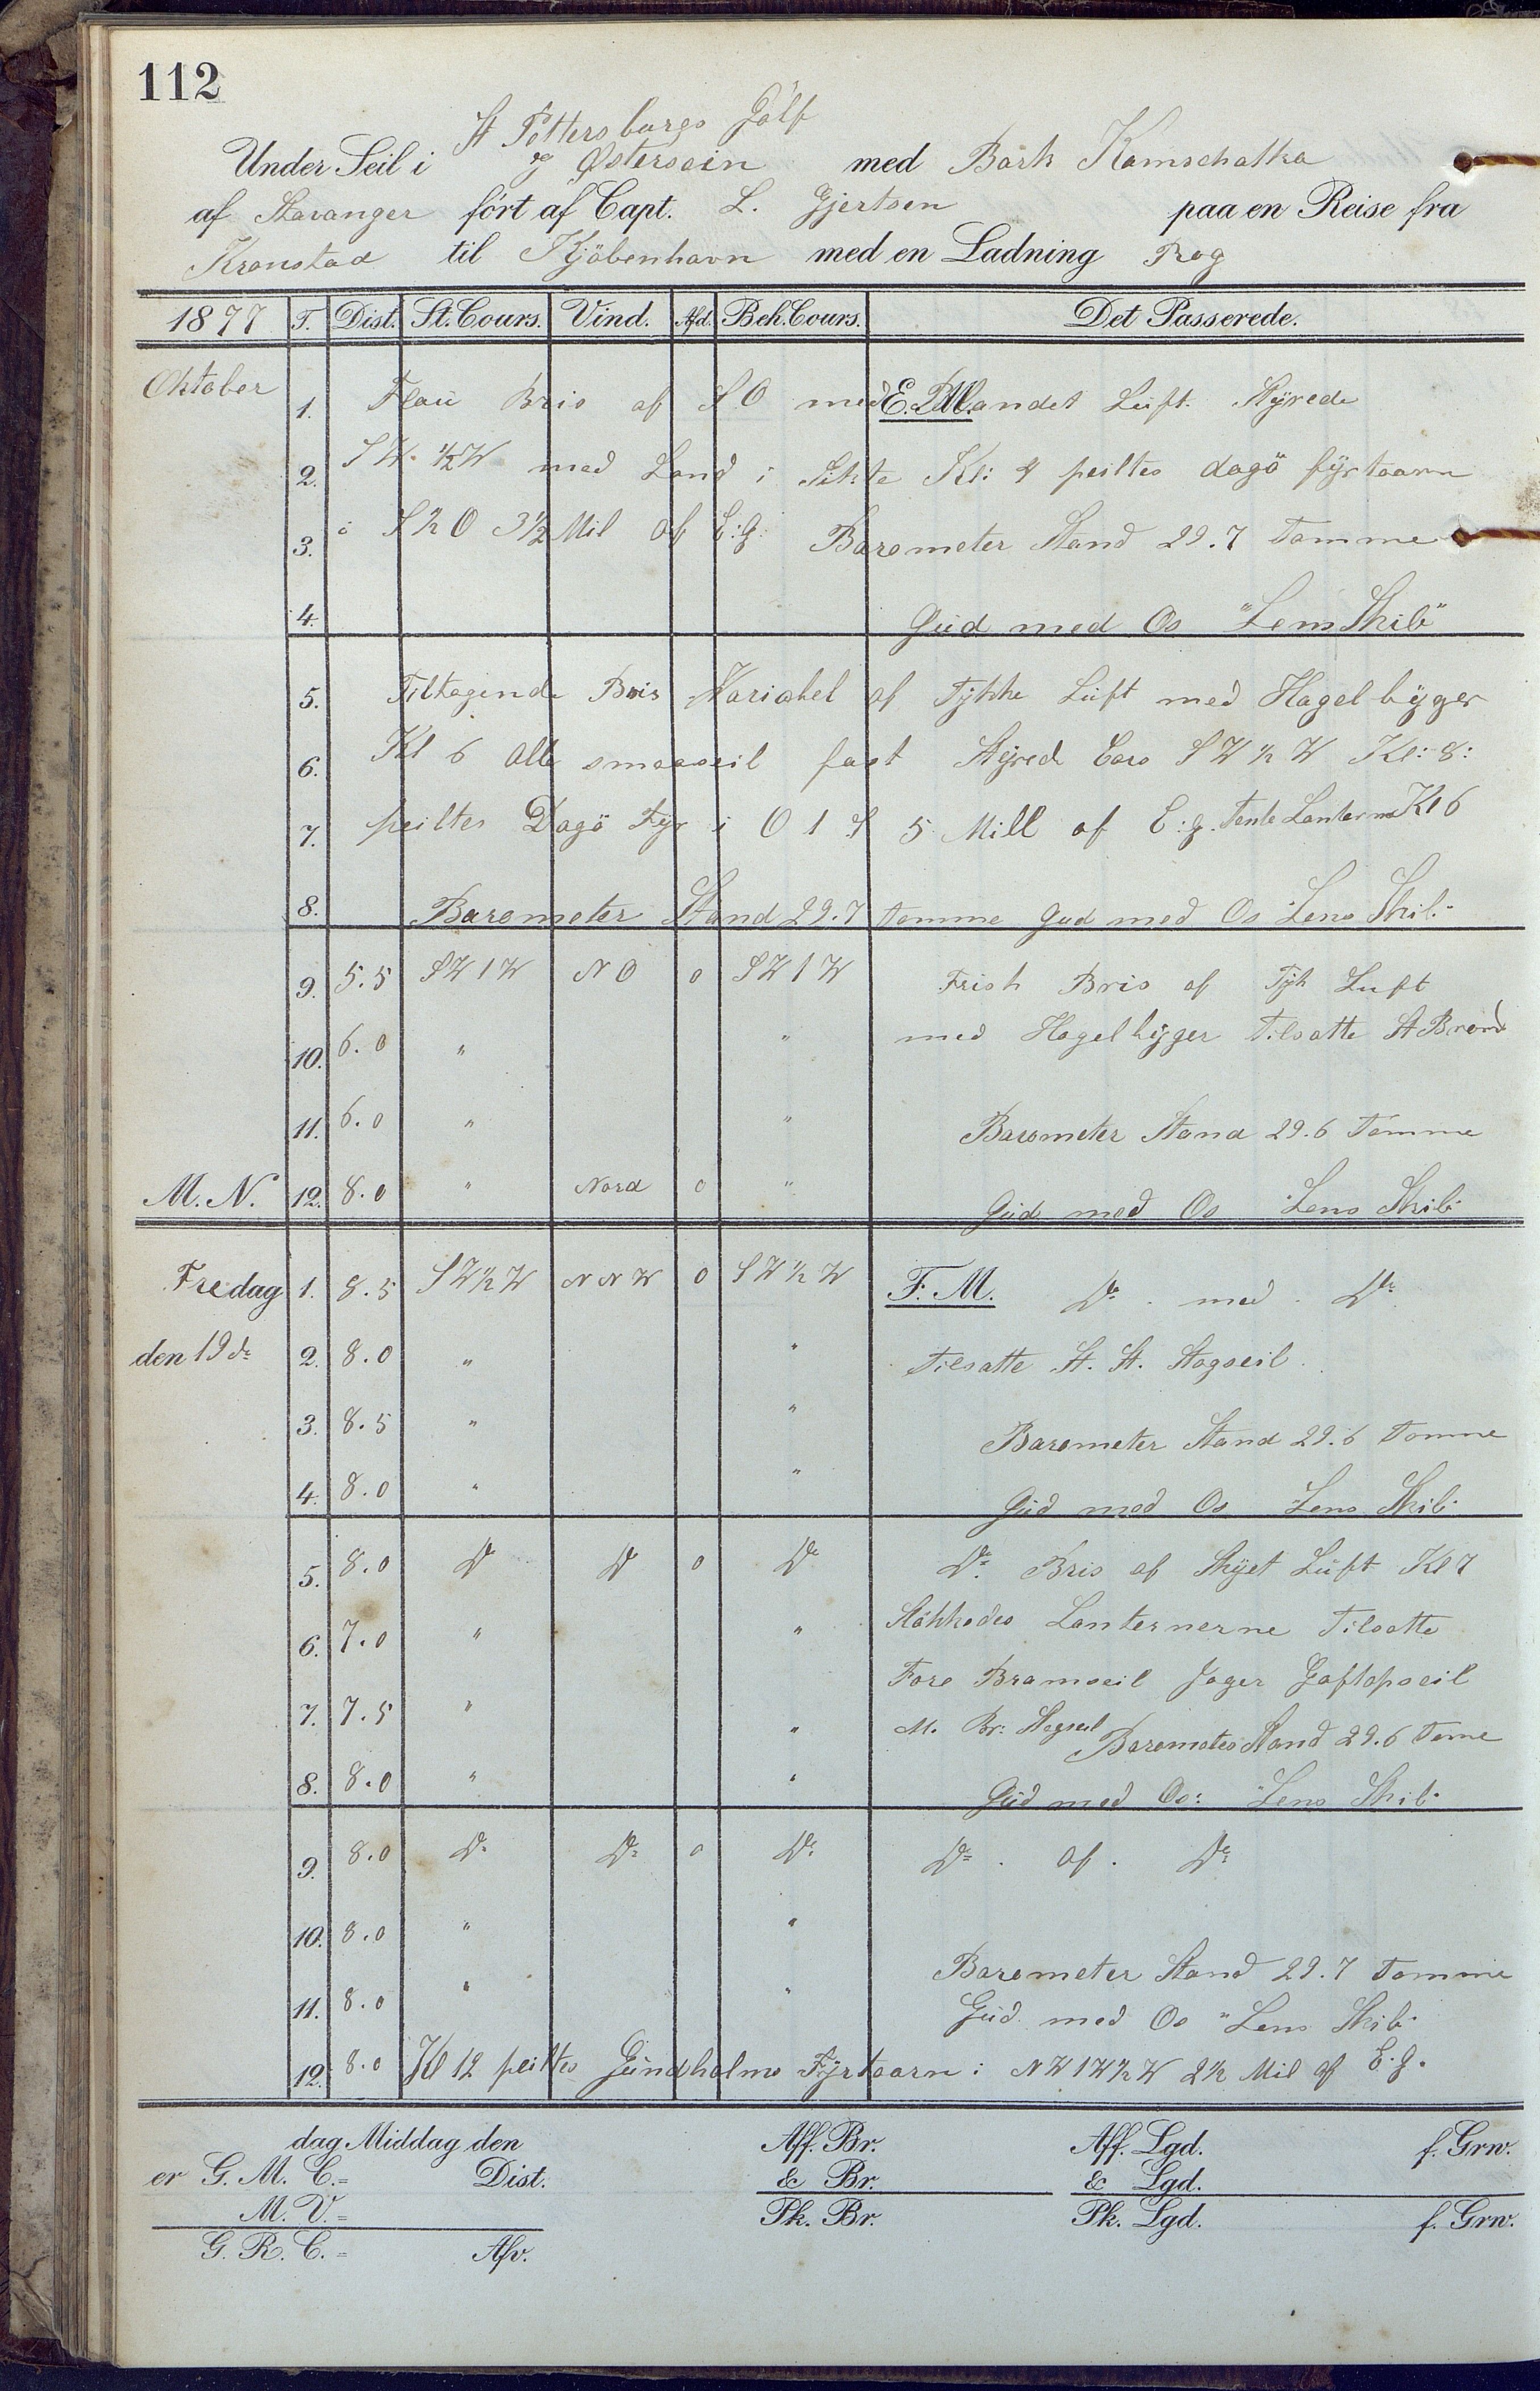 112
St Pettersburgs Golf
Under Seil i og Østersøin med Bark Kamschatka
af Stavanger ført af Capt. L. Gjertsen paa en Reise fra
Kronstad til Kjöbenhavn med en Ladning Rog
1877 T. Dist. St. Cours. Vind. Afd. Beh. Cours. Det Passerede.
Oktober 1. Flaü Bris af SO med E.M. Blandet Lüft. Stÿrede
2. SW. ½ W med Land i Sikte Kl: 4 peiltes dagö fÿrtaarn
3. i S ½ O 3½ Mil Af E:G: Barometer Stand 29.7 Tomme
4. Güd med Os "Lens Skib"
5. Tiltagende Bris Variabel af Tÿkke Lüft med Hagelbÿger
6. Kl 6 alle smaaseil fast Stÿred Cars SW ½ W Kl: 8:
7. peiltes Dagö Fÿr i O 1 S 5 Mill af E:g. Tente Lanterne Kl 6
8. Barometer Stand 29.7 tomme Gud med Os "Lens Skib"
9. 5.5 SW 1 W NO 0 SW 1 W Frisk Bris af Tÿk Luft
10. 6.0 " " med Hagelbÿger Tilsatte St Bred
11. 6.0 " " Barometer Stand 29.6 Tomme
M. N. 12. 8.0 " Nord 0 " Güd med Os "Lens Skib"
Fredag 1. 8.5 SW ½ W NNW 0 SW ½ W F. M. Do. med Do.
den 19 de 2. 8.0 " " Tilsatte St. St. Stagseil.
3. 8.5 " " Barometer Stand 29.6 Tomme
4. 8.0 " " Güd med Os "Lens Skib"
5. 8.0 Do Do 0 Do Do. Bris af Skÿet Lüft Kl 7
6. 7.0 " " Slökkedes Lanternerne Tilsatte
Fore Bramseil Jager Gaftopseil
7. 7.5 " " M. Br: Stagseil Barometer Stand 29.6 Tome
8. 8.0 " " Güd med Os: "Lens Skib"
9. 8.0 Do. Do. 0 Do. Do. af. Do.
10. 8.0 " "
Barometer Stand 29.7 Tomme
11. 8.0 " " Güd med Os "Lens Skib"
12. 8.0 Kl 12 peiltes Fÿrtaarn i NW 1 W ½ W 2½ Mil af E.g.
dag Middag den Aff. Br. Aff. Lgd. f. Grw.
er G. M. C.= Dist. & Br. & Lgd.
M. V.= Pk. Br. Pk. Lgd. f. Grw.
G. R. C.= Afv.